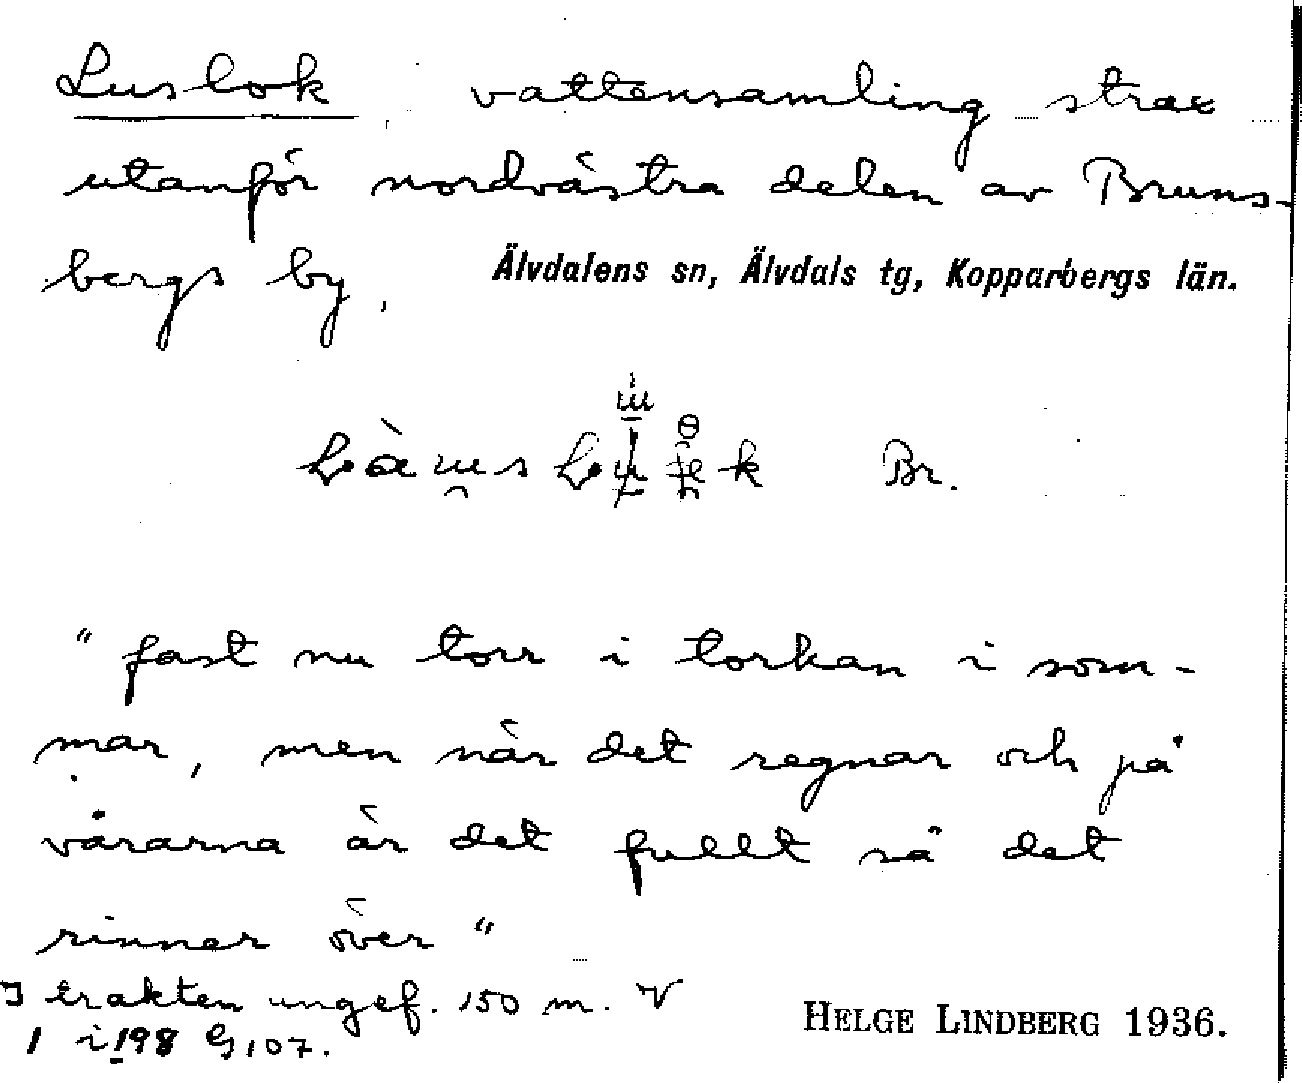 Luslok, vattensamling strax
utanför nordvästra delen av Bruns-
bergs by. Älvdalens sn, Älvdals tg, Kopparbergs län.
Br.
" fast nu torr i torkan i som-
mar, men när det regnar och på
vårarna är det fullt så det
rinner över "
I trakten ungef. 150 m. V
1 i 198 G 107. HELGE LINDBERG 1936.